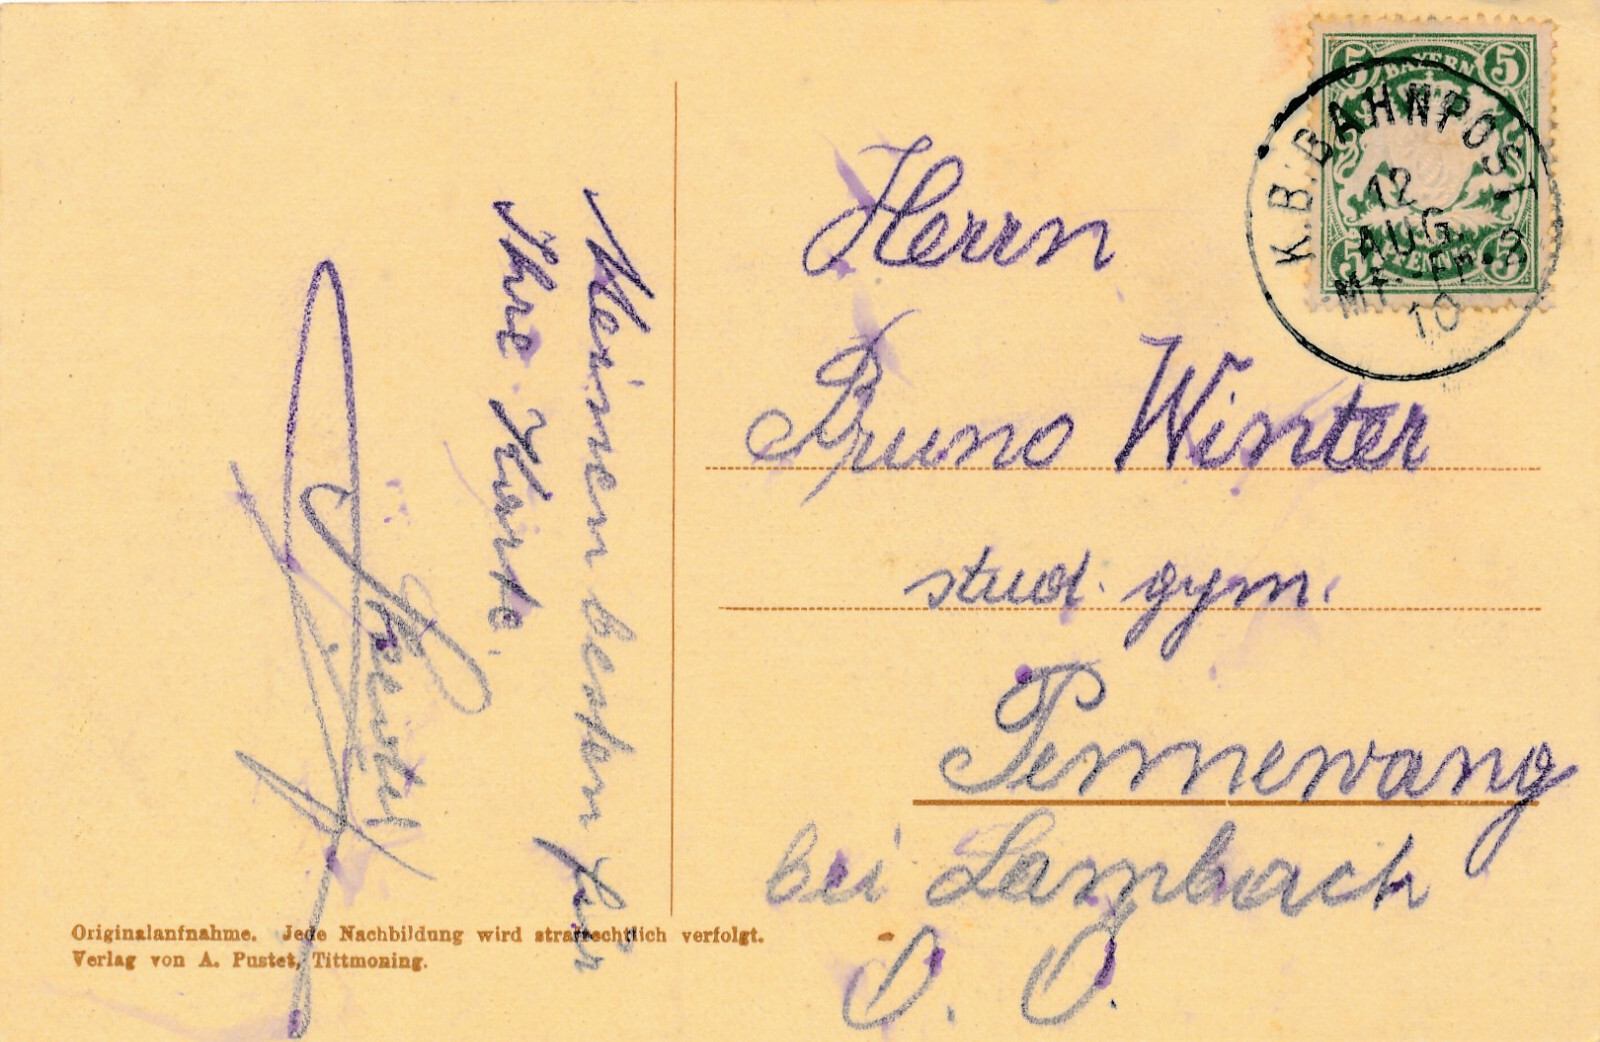 Meinen besten für
Ihre Karte.
Herrn
Bruno Winter
stud. gym.
Pennewang
bei Lambach
O. Ö.
5 BAYERN 5
5 PFENNIG 5
K.B.BAHNPOST
12
AUG.
10
Originalaufnahme. Jede Nachbildung wird strafrechtlich verfolgt.
Verlag von A. Pustet, Tittmoning.